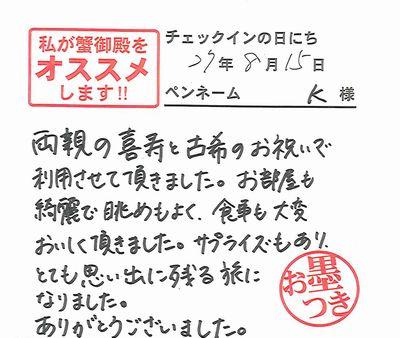 私が蟹御殿を
オススメ
します!!
チェックインの日にち
27年8月15日
ペンネーム K 様
両親の喜寿と古希のお祝いで
利用させて頂きました。お部屋も
綺麗で眺めもよく、食事も大変
おいしく頂きました。サプライズもあり、
とても思い出に残る旅に
なりました。
ありがとうございました。
お墨つき